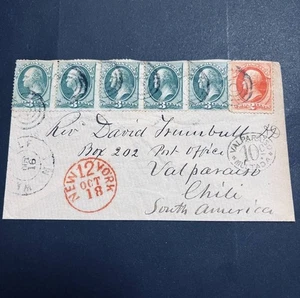 Rev David Trumbull DD
Box 202 Post Office
Valparaiso
Chili
South America
NEW YORK
12
OCT
18
VALPARAISO
10
3
3
3
3
3
2